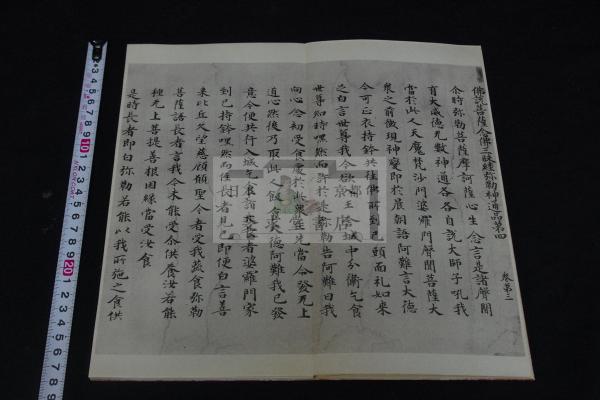 佛說菩薩念佛三昧經弥勒神通品第四
卷第三
尒時弥勒菩薩摩訶薩心生念言是諸聲聞
有大威德无數神通各各自說大師子吼我
當於此人天魔梵沙門婆羅門聲聞菩薩大
衆之前微現神變即於晨朝語阿難言大德
今可正衣持鉢共往佛所到已頭面礼如來
之白言世尊我今欲 王 城中分衛乞食
世尊知時嘿然而許於是弥勒告阿難曰我
向心念初受食處於此衆生先當令發无上
道心然後乃取此人飯食大德阿難我已發
意今便共行入城乞食 長者婆羅門家
到已持鉢嘿然而住長者見已即便白言善
來比丘久望慈顔願聖今者受我蔬食弥勒
菩薩語長者言我今未能受尒供養汝若能
種无上菩提善根因緣當受汝食
是時長者即白弥勒若能以我所施之食供